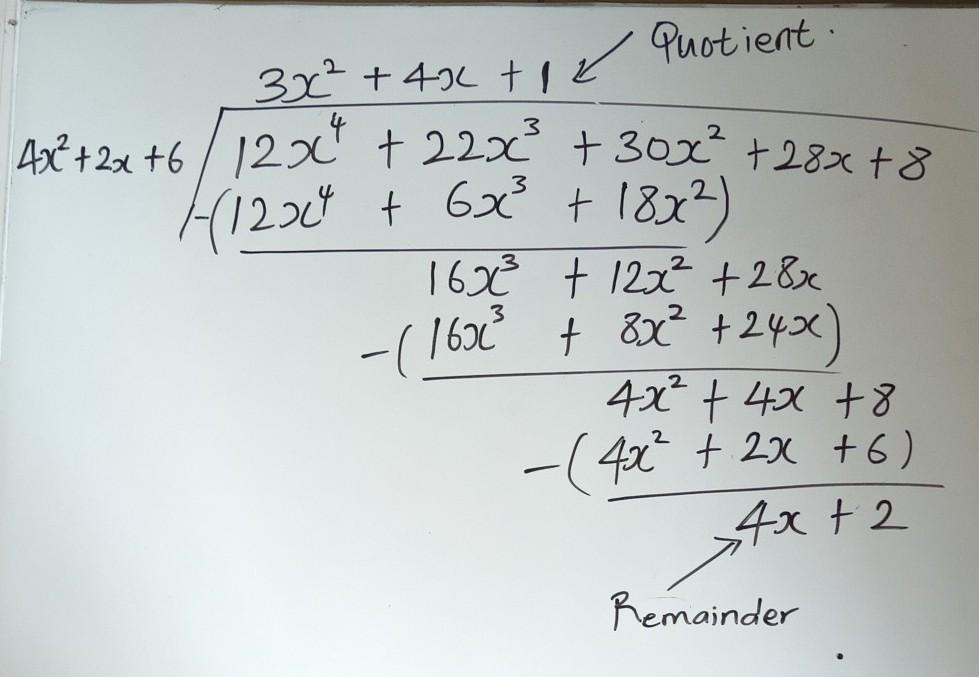 Quotient.
3x² + 4x + 1
4x²+2x+6 / 12x⁴ + 22x³ + 30x² + 28x + 8
-(12x⁴ + 6x³ + 18x²)
16x³ + 12x² + 28x
-(16x³ + 8x² + 24x)
4x² + 4x + 8
-(4x² + 2x + 6)
4x + 2
Remainder